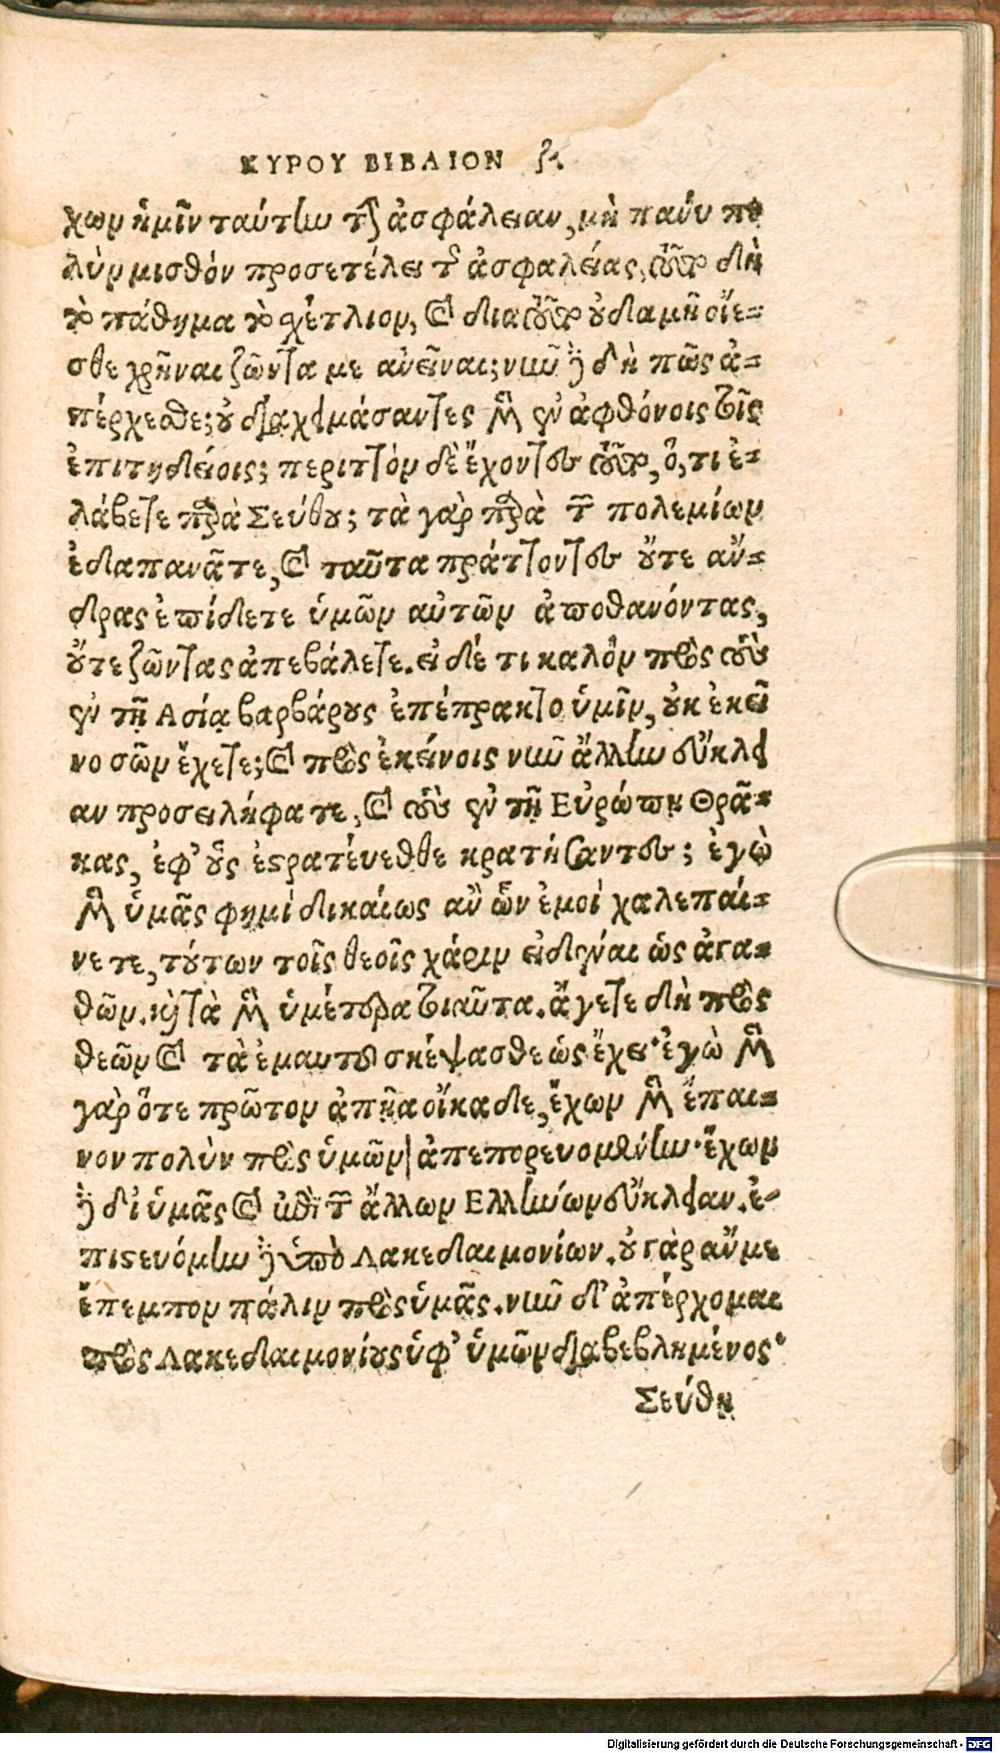 ΚΥΡΟΥ ΒΙΒΛΙΟΝ ζ.
χων ἡμῖν ταύτην τὴν ἀσφάλειαν, μὴ πάνυ πο
λὺν μισθὸν προσετέλει τῆς ἀσφαλείας, τοῦτο δὴ
τὸ πάθημα τὸ σχέτλιον, καὶ διὰ τοῦτο οὐδαμῆ οἴε-
σθε χρῆναι ζῶντα με ἀνεῖναι; νῦν δὲ δὴ πῶς ἀ-
πέρχεσθε; οὐ διαχειμάσαντες μὲν ἐν ἀφθόνοις τοῖς
ἐπιτηδείοις; περιττὸν δὲ ἔχοντες τοῦτο, ὅ,τι ἐ-
λάβετε παρὰ Σεύθου; τὰ γὰρ παρὰ τῶν πολεμίων
ἐδαπανᾶτε, καὶ ταῦτα πράττοντες οὔτε ἄν-
δρας ἐπίδετε ὑμῶν αὐτῶν ἀποθανόντας,
οὔτε ζῶντας ἀπεβάλετε. εἰ δέ τι καλὸν πρὸς τοὺς
ἐν τῇ Ασίᾳ βαρβάρους ἐπέπρακτο ὑμῖν, οὐκ ἐκεῖ
νο σῶν ἔχετε; καὶ πρὸς ἐκείνοις νῦν ἄλλην εὔκλει
αν προσειλήφατε, καὶ τοὺς ἐν τῇ Εὐρώπη Θρᾶ-
κας, ἐφ' οὓς ἐστρατεύεσθε κρατήσαντες; ἐγὼ
μὲν ὑμᾶς φημὶ δικαίως ἂν ὧν ἐμοὶ χαλεπαί-
νετε, τούτων τοῖς θεοῖς χάριν εἰδέναι ὡς ἀγα-
θῶν. καὶ τὰ μὲν ὑμέτερα τοιαῦτα. ἄγετε δὴ πρὸς
θεῶν καὶ τὰ ἐμαυτοῦ σκέψασθε ὡς ἔχει· ἐγὼ μὲν
γὰρ ὅτε πρῶτον ἀπῆα οἴκαδε, ἔχων μὲν ἔπαι-
νον πολὺν πρὸς ὑμῶν ἀπεπορευόμην· ἔχων
δὲ δι' ὑμᾶς καὶ ὑπὸ τῶν ἄλλων Ελλήνων εὔκλειαν. ἐ-
πιστευόμην δὲ ὑπὸ Λακεδαιμονίων. οὐ γὰρ ἄν με
ἔπεμπον πάλιν πρὸς ὑμᾶς. νῦν δ' ἀπέρχομαι
πρὸς Λακεδαιμονίους ὑφ' ὑμῶν διαβεβλημένος·
Σεύθη
Digitalisierung gefördert durch die Deutsche Forschungsgemeinschaft - DFG